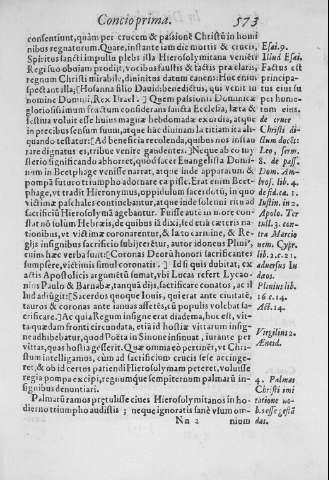 Concio prima. 573
consentiunt, quàm per crucem & passionē Christũ in homi
nibus regnaturum. Quare, instante iam die mortis & crucis,
Spiritus sancti impulsu plebs illa Hierosolymitana venēti
Regi suo obuiam prodijt, vocibus faustis & factis præclaris,
regnum Christi mirabile, diuinitus datum canens: Huc enim
spectant illa: [Hosanna filio Dauid: benedictus, qui venit in
nomine Domini, Rex Israel.] Quem passionis Dominicæ
gloriosissimum fructum considerans sancta Ecclesia, læta &
festiua voluit esse huius magnæ hebdomadæ exordia, atque
in precibus sensum suum, atque hāc diuinam lætitiam ita ali-
quando testatur: [Ad beneficia recolenda, quibus nos instau
rare dignatus es, tribue venire gaudentes.] Neque ab eo my
sterio significando abhorret, quod sacer Euangelista Domi-
num in Beetphage venisse narrat, atque inde apparatum &
pompā futuro triumpho adornare cœpisse. Erat enim Beet-
phage, vt tradit Hieronymus, oppidulum sacerdotũ, in quo
victimæ paschales continebantur, atque inde solenni ritu ad
sacrificiũ Hierosolymā agebantur. Fuisse autē in more con-
stat nō solùm Hebræis, de quibus iã dixi, sed etiã cæteris na-
tionibus, vt victimæ coronarentur, & lato carmine, & Re-
gijs insignibus sacrificio subijcerētur, autor idoneus Plini⁹,
cuius hæc verba sunt: [Coronas Deorũ honori sacrificantes
sumpsere, victimis simul coronatis.] Id si quis dubitat, ex
actis Apostolicis argumētũ sumat, vbi Lucas refert Lycao-
nios Paulo & Barnabæ, tanquā dijs, sacrificare conatos, ac il
lud adiũgit: [Sacerdos quoque Iouis, qui erat ante ciuitatē,
tauros & coronas ante ianuas afferēs, cũ populis volebat sa-
crificare.] Ac quia Regum insigne erat diadema, hoc est, vit-
ta quædam fronti circundata, etiã id hostiæ vittarum insig-
ne adhibebatur, quod Poëta in Sinone insinuat, iurante per
vittas, quas hostia gesserit. Quæ omnia eò pertinēt, vt Chri-
stum intelligamus, cùm ad sacrificium crucis sese accinge-
ret, & ob id certus patiendi Hierosolymam peteret, voluisse
regia pompa excipi, regnumq́ue sempiternum palmarũ in-
signibus denuntiari.
Palmarũ ramos prætulisse ciues Hierosolymitanos in ho-
dierno triumpho audistis: neque ignoratis sanè vsum om-
Nn 2 nium
Esai. 9.
Illud Esai.
Factus est
principa-
tus eius su
per hume-
rum eius.
de cruce
Christi di-
ctum docēt:
Leo, serm.
8. de pass.
Dom. Am-
bros. lib. 4.
de fid. ca. 1.
Iustin. in 2.
Apolo. Ter
tull. 3. con-
tra Marcio
nem. Cypr.
lib. 2. c. 21.
aduersus Iu
dæos.
Plinius lib.
16. c. 14.
Act. 14.
Virgilius 2.
Æneid.
4. Palmas
Christi imi
tatione no-
b. esse gestā
das.